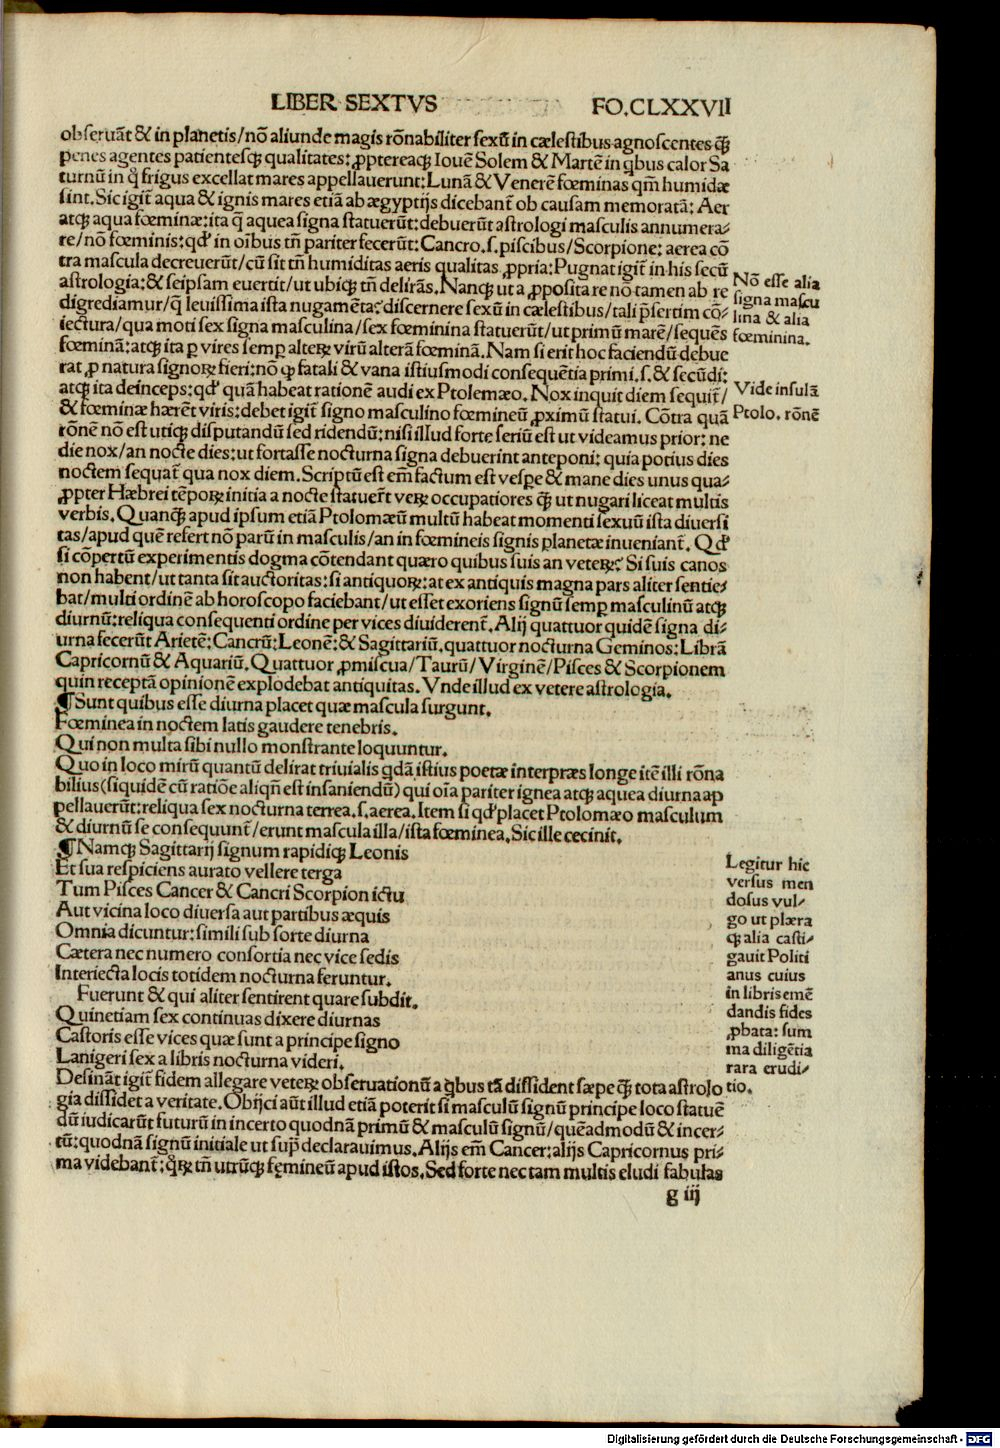 LIBER SEXTVS FO.CLXXVII
obſeruāt & in planetis/nō aliunde magis rōnabiliter ſexū in cæleſtibus agnoſcentes ꝙ̃
penes agentes patienteſqꝫ qualitates: ꝓptereaqꝫ Iouē Solem & Martē in qbus calor Sa
turnū in q̊ frigus excellat mares appellauerunt: Lunā & Venerē fœminas qm̄ humidæ
ſint. Sic igit̄ aqua & ignis mares etiā ab ægyptijs dicebant̄ ob cauſam memoratā: Aer
atqꝫ aqua fœminæ: ita q̄ aquea ſigna ſtatuerūt: debuerūt aſtrologi maſculis annumera⸗
re/nō fœminis: qd̓ in oībus tn̄ pariter fecerūt: Cancro .ſ. piſcibus/Scorpione: aerea cō
tra maſcula decreuerūt/cū ſit tn̄ humiditas aeris qualitas ꝓpria: Pugnat igit̄ in his ſecū
aſtrologia: & ſeipſam euertit/ut ubiqꝫ tn̄ delirās. Nanqꝫ ut a ꝓpoſita re nō tamen ab re
digrediamur/q̄ leuiſſima iſta nugamēta: diſcernere ſexū in cæleſtibus/tali p̄ſertim cō⸗
iectura/qua moti ſex ſigna maſculina/ſex fœminina ſtatuerūt/ut primū marē/ſequēs
fœminā: atqꝫ ita ꝑ vires ſemꝑ alteꝝ virū alterā fœminā. Nam ſi erit hoc faciendū debue
rat ꝓ natura ſignoꝝ fieri: nō ꝙ fatali & vana iſtiuſmodi conſequētia primi .ſ. & ſecūdi:
atqꝫ ita deinceps: qd̓ quā habeat rationē audi ex Ptolemæo. Nox inquit diem ſequit̄/
& fœminæ hærēt viris: debet igit̄ ſigno maſculino fœmineū ꝓximū ſtatui. Cōtra quā
rōnē nō eſt utiqꝫ diſputandū ſed ridendū: niſi illud forte ſeriū eſt ut videamus prior: ne
die nox/an nocte dies: ut fortaſſe nocturna ſigna debuerint anteponi: quia potius dies
noctem ſequat̄ qua nox diem. Scriptū eſt em̄ factum eſt veſꝑe & mane dies unus qua⸗
ꝓpter Hæbrei tēpoꝝ initia a nocte ſtatuer̄t veꝝ occupatiores ꝙ̃ ut nugari liceat multis
verbis. Quanꝙ̃ apud ipſum etiā Ptolomæū multū habeat momenti ſexuū iſta diuerſi
tas/apud quē refert nō parū in maſculis/an in fœmineis ſignis planetæ inueniant̄. Qd̓
ſi cōpertū experimentis dogma cōtendant quæro quibus ſuis an veteꝝ: Si ſuis canos
non habent/ut tanta ſit auctoritas: ſi antiquoꝝ: at ex antiquis magna pars aliter ſentie⸗
bat/multi ordinē ab horoſcopo faciebant/ut eſſet exoriens ſignū ſemꝑ maſculinū atqꝫ
diurnū: reliqua conſequenti ordine per vices diuiderent̄. Alij quattuor quidē ſigna di⸗
urna fecerūt Arietē: Cancrū: Leonē: & Sagittariū. quattuor nocturna Geminos: Librā
Capricornū & Aquariū. Quattuor ꝓmiſcua/Taurū/Virginē/Piſces & Scorpionem
quin receptā opinionē explodebat antiquitas. Vnde illud ex vetere aſtrologia.
¶Sunt quibus eſſe diurna placet quæ maſcula ſurgunt.
Fœminea in noctem latis gaudere tenebris.
Qui non multa ſibi nullo monſtrante loquuntur.
Quo in loco mirū quantū delirat triuialis qdā iſtius poetæ interpræs longe itē illi rōna
bilius (ſiquidē cū ratiōe aliqn̄ eſt inſaniendū) qui oīa pariter ignea atqꝫ aquea diurna ap
pellauerūt: reliqua ſex nocturna terrea .ſ. aerea. Item ſi qd̓ placet Ptolomæo maſculum
& diurnū ſe conſequunt̄/erunt maſcula illa/iſta fœminea. Sic ille cecinit.
¶Namqꝫ Sagittarij ſignum rapidiqꝫ Leonis
Et ſua reſpiciens aurato vellere terga
Tum Piſces Cancer & Cancri Scorpion ictu
Aut vicina loco diuerſa aut partibus æquis
Omnia dicuntur: ſimili ſub ſorte diurna
Cætera nec numero conſortia nec vice ſedis
Interiecta locis totidem nocturna feruntur.
Fuerunt & qui aliter ſentirent quare ſubdit.
Quinetiam ſex continuas dixere diurnas
Caſtoris eſſe vices quæ ſunt a principe ſigno
Lanigeri ſex a libris nocturna videri.
Deſināt igit̄ fidem allegare veteꝝ obſeruationū a qbus tā diſſident ſæpe ꝙ̃ tota aſtrolo
gia diſſidet a veritate. Obijci aūt illud etiā poterit ſi maſculū ſignū principe loco ſtatuē
dū iudicarūt futurū in incerto quodnā primū & maſculū ſignū/quēadmodū & incer⸗
tū: quodnā ſignū initiale ut ſup̄ declarauimus. Alijs em̄ Cancer: alijs Capricornus pri⸗
ma videbant̄: q̊ꝝ tn̄ utrūqꝫ fęmineū apud iſtos. Sed forte nec tam multis eludi fabulas
g iij
Nō eſſe alia
ſigna maſcu
lina & alia
fœminina.
Vide inſulā
Ptolo. rōnē
Legitur hic
verſus men
doſus vul⸗
go ut plæra
qꝫ alia caſti⸗
gauit Politi
anus cuius
in libris emē
dandis fides
ꝓbata: ſum
ma diligētia
rara erudi⸗
tio.
Digitalisierung gefördert durch die Deutsche Forschungsgemeinschaft - DFG